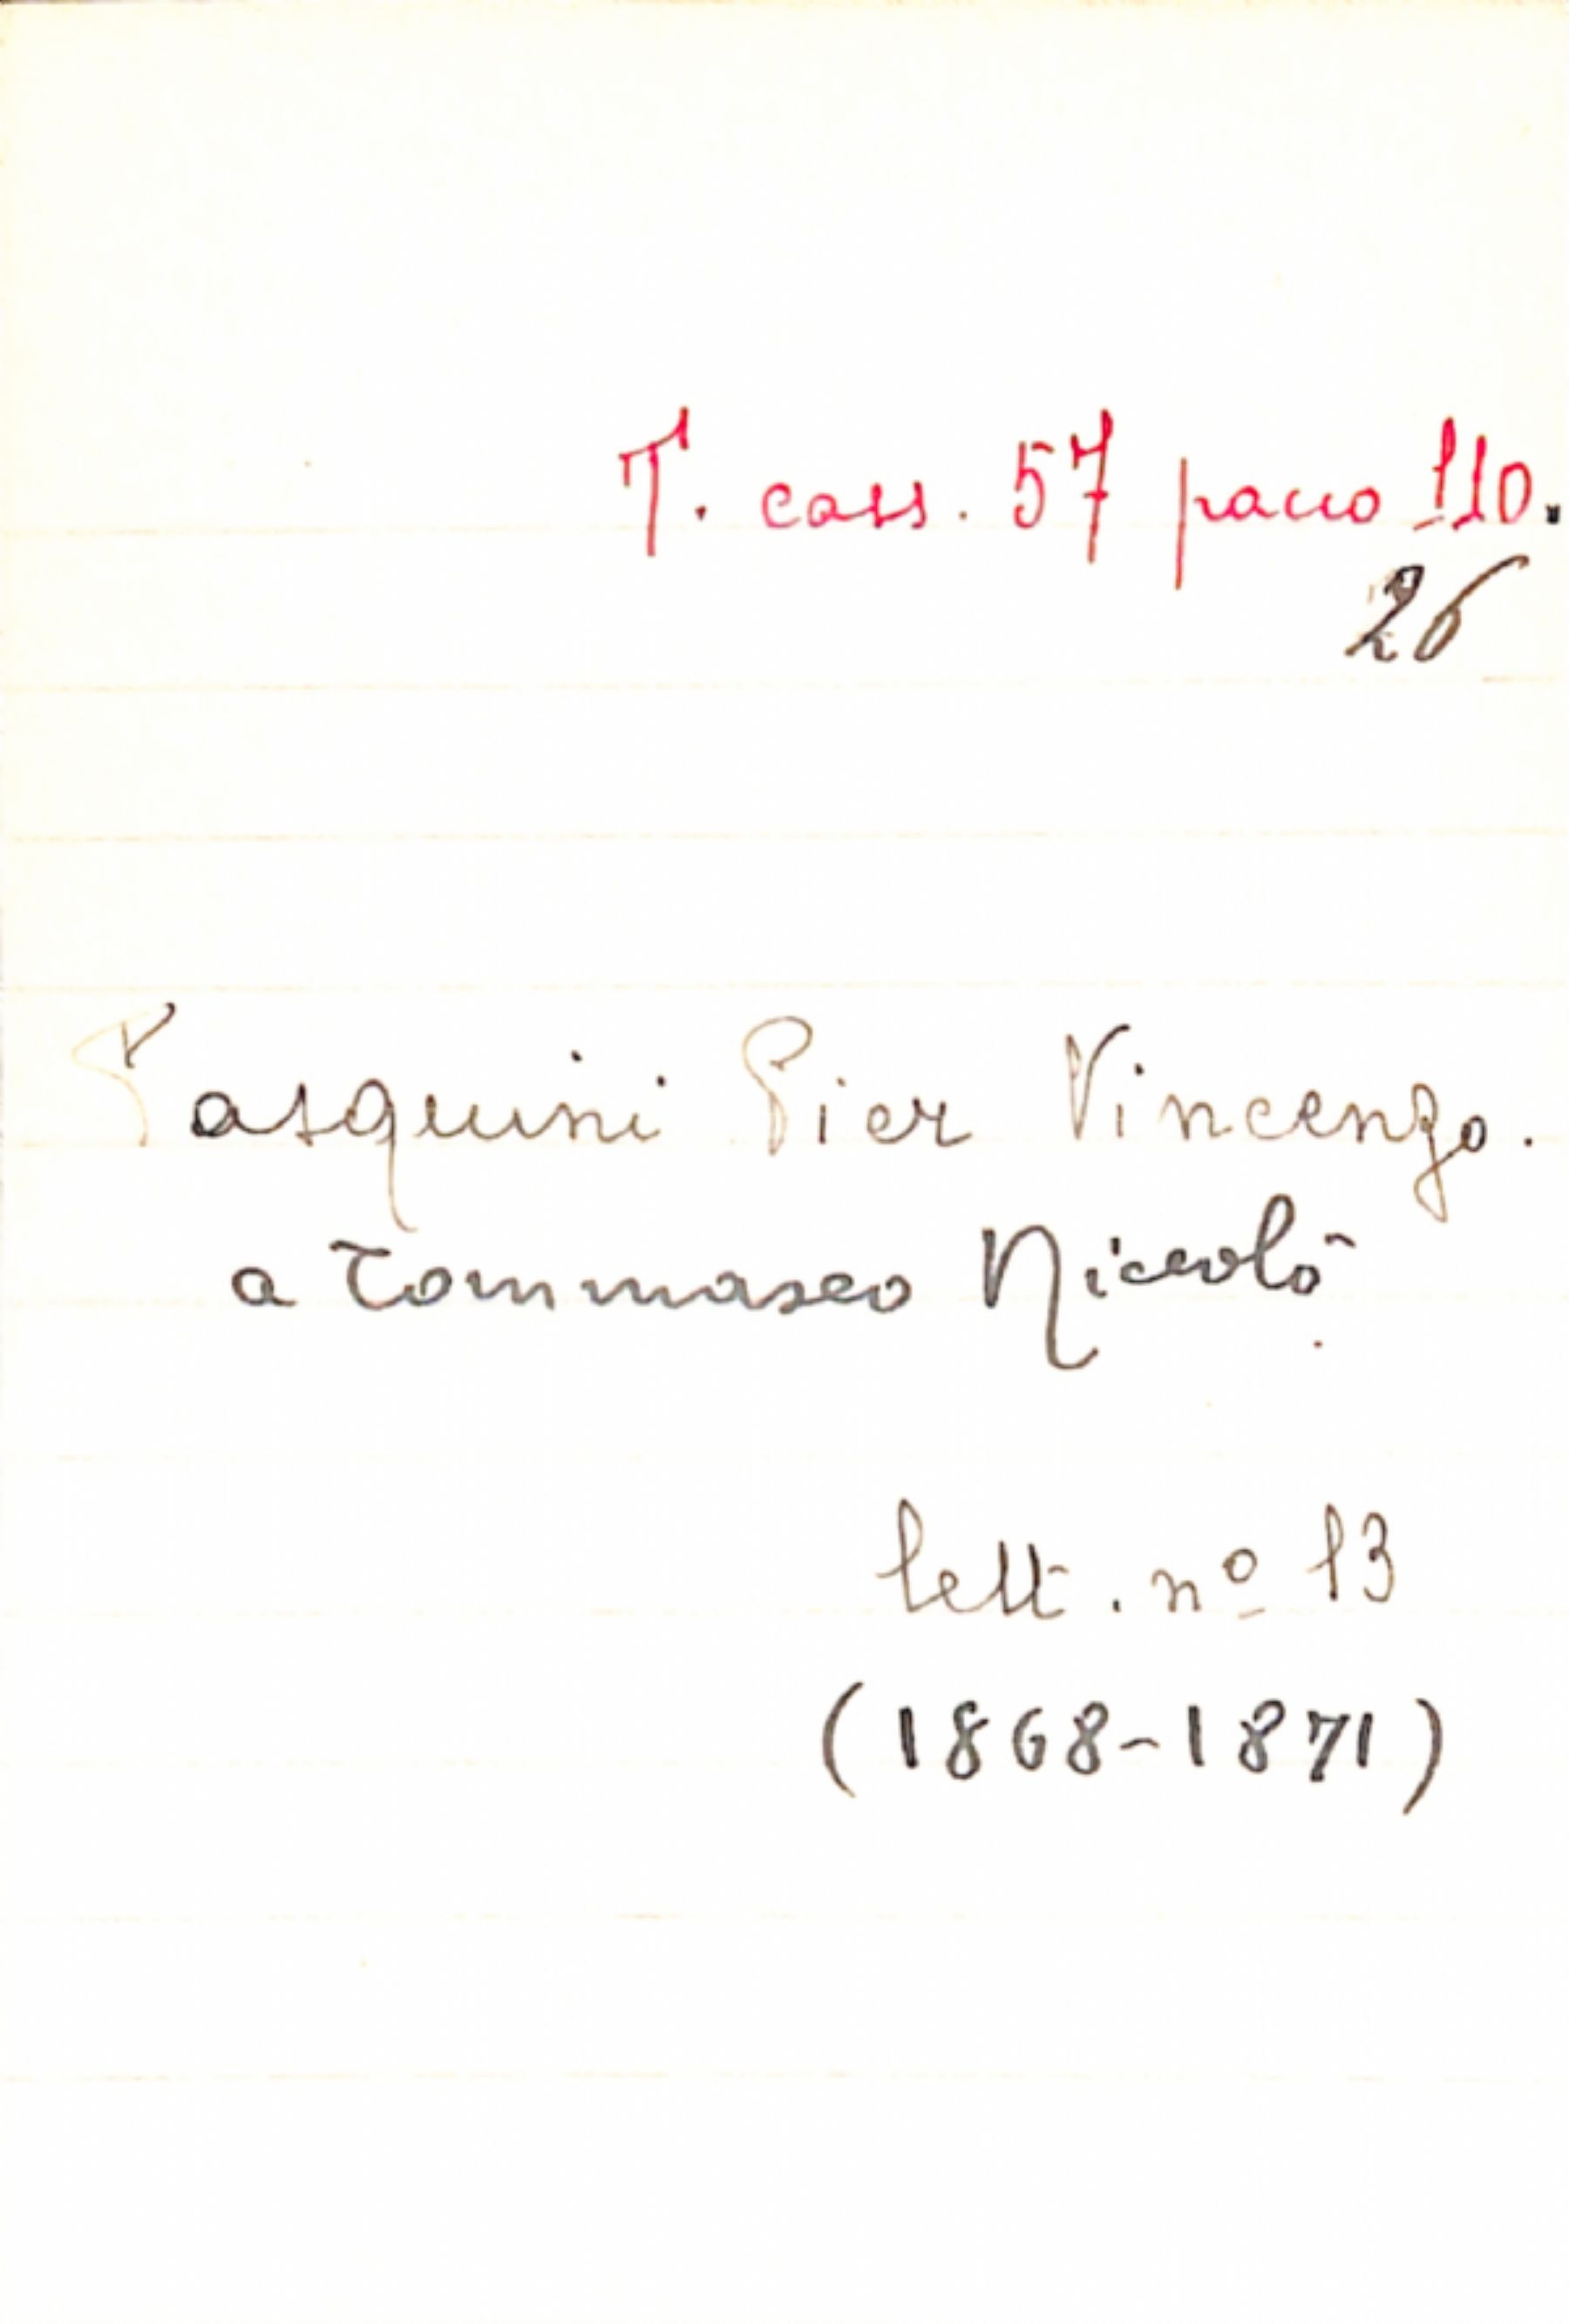 T. cass. 57 pacco 110.
26
Pasquini Pier Vincenzo.
a Tommaseo Niccolò
lett. nº 13
(1868-1871)